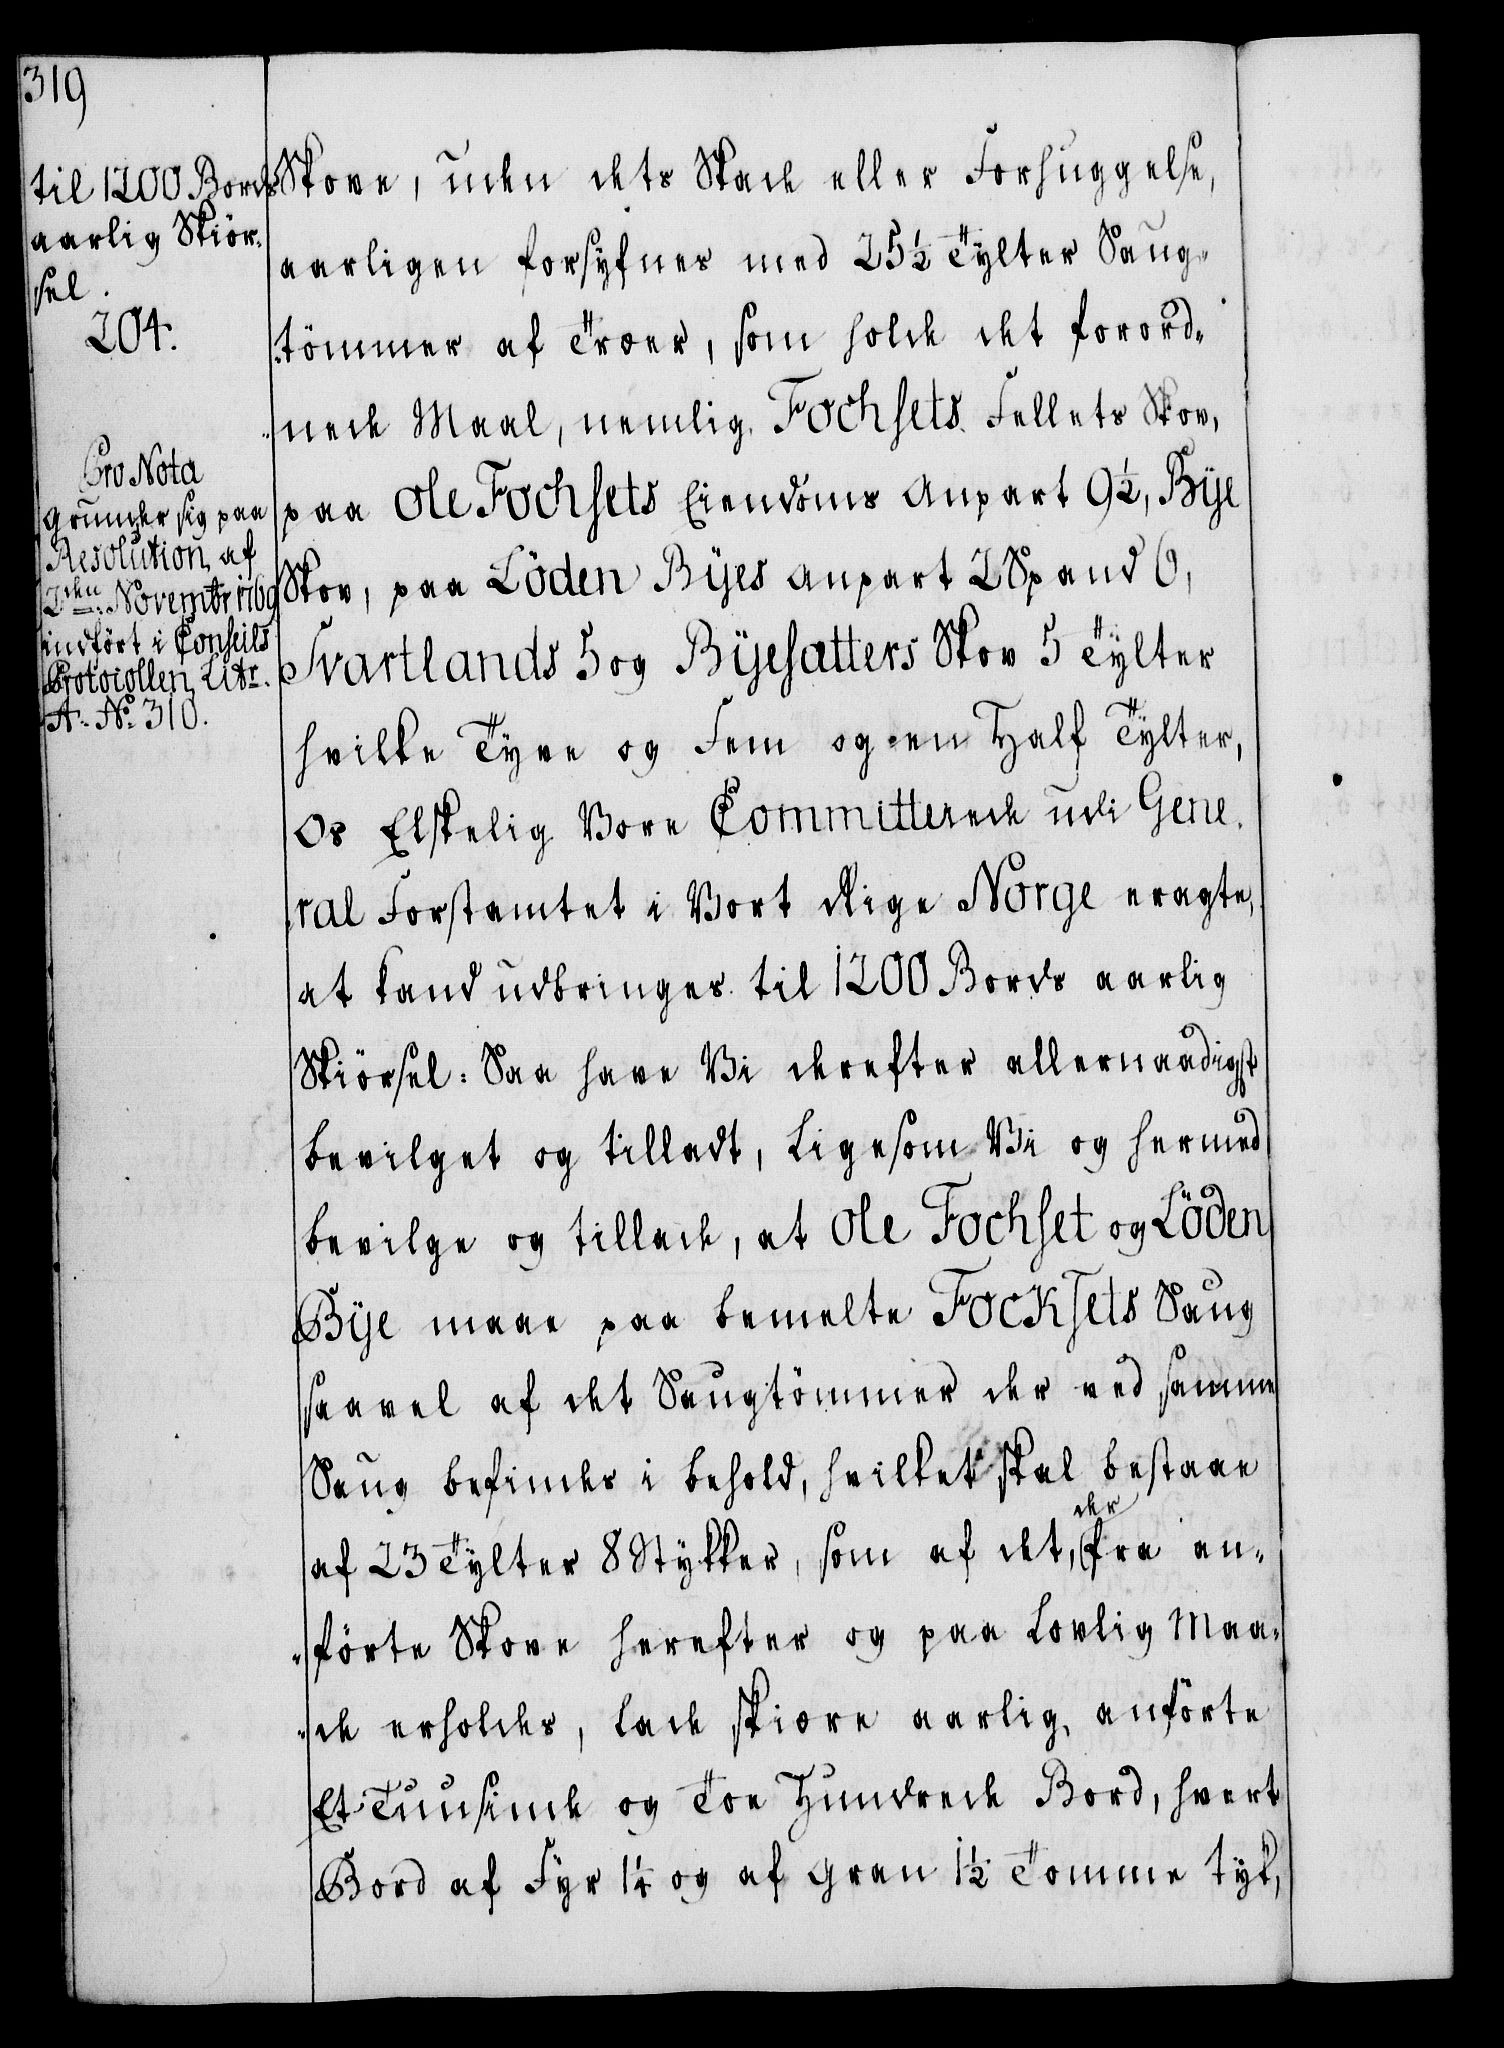 319
til 1200 Bords
aarlig Skiör-
sel.
204.
Pro Nota
grunder sig paa
Resolution af
2den Novembr 1769
indfört i Conseils
Protocollen Litr.
A. No 310.
Skove, uden dets Skade eller Forhuggelse,
aarligen forsyfnes med 25½ Tylter Saug-
tömmer af Træer, som holde det forord-
nede Maal, nemlig Fochsets Fellets Skov,
paa Ole Fochsets Eiendoms Anpart 9½, Bÿe
Skov, paa Löden Bÿes Anpart 2 Spand 6,
Svartlands 5 og Bÿesatters Skov 5 Tylter
hvilke Tyve og Fem og en Half Tylter,
Os Elskelig Vore Committerede udi Gene-
ral Forstamtet i Vort Rige Norge eragte,
at kand udbringes til 1200 Bords aarlig
Skiörsel: Saa have Vi derefter allernaadigst
bevilget og tilladt, Ligesom Vi og hermed
bevilge og tillade, at Ole Fochset og Löden
Bÿe maae paa bemelte Focksets Saug
saavel af det Saugtömmer der ved samme
Saug befindes i behold, hvilket skal bestaae
af 23 Tylter 8 Stykker, som af det, der fra an-
förte Skove herefter og paa Lovlig Maa-
de erholdes, lade skiære aarlig, anförte
Et Tuusinde og Toe Hundrede Bord, hvert
Bord af Fyr 1¼ og af Gran 1½ Tomme tyk,